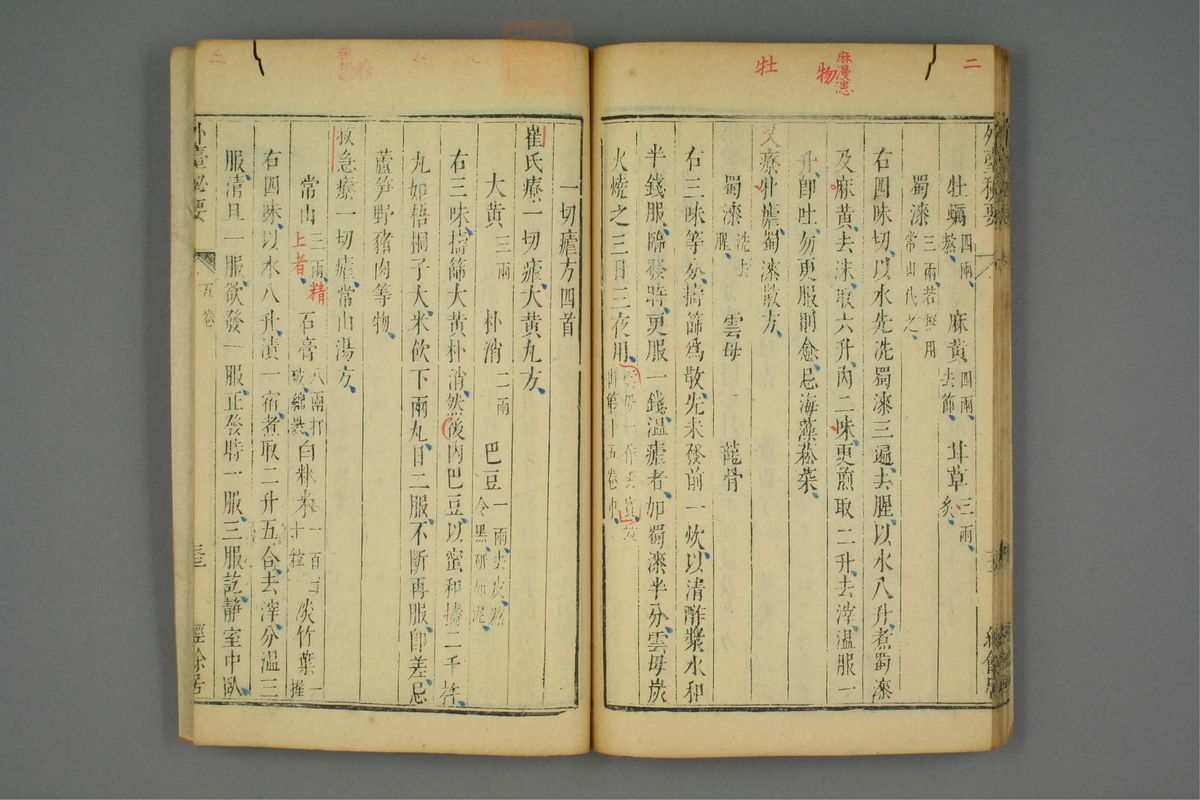 二
麻漫悲
物
牡
牡蠣四兩熬、麻黃四兩、去節、甘草三兩、炙、
蜀漆三兩若無用常山代之、
右四味切、以水先洗蜀漆三遍、去腥、以水八升煮蜀漆
及麻黃、去沫、取六升、內二味、更煎取二升、去滓、溫服一
升、卽吐、勿更服則愈、忌海藻菘菜、
又療牡瘧蜀漆散方、
蜀漆洗去腥、雲母 龍骨
右三味等分、擣篩爲散、先未發前一炊、以清酢漿水和
半錢服、臨發時、更服一錢、溫瘧者、加蜀漆半分、雲母炭
火燒之三日三夜用、雲母一作雲實出第十五卷中、
一切瘧方四首
崔氏療一切瘧大黃丸方、
大黃三兩 朴消二兩 巴豆一兩、去皮、熬令黑、研如泥、
右三味、擣篩大黃朴消、然後內巴豆、以蜜和擣二千杵、
丸如梧桐子大、米飲下兩丸、日二服、不斷再服、卽差、忌
蘆笋野豬肉等物、
救急療一切瘧、常山湯方、
常山三兩、精上者、石膏八兩打破、綿裹、白秫米一百二十粒 淡竹葉一握
右四味、以水八升、漬一宿、煮取二升五合、去滓、分溫三
服、清旦一服、欲發一服、正發時一服、三服訖、靜室中臥、
外臺秘要
五卷
經餘居